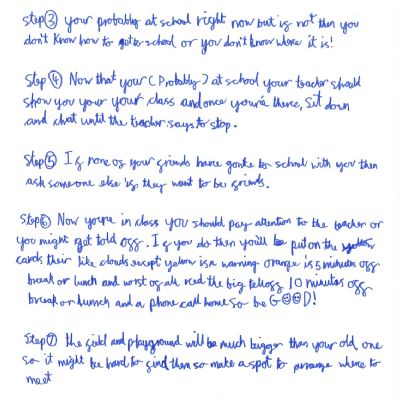 Step③ your probably at school right now but is not then you
don't know how to get to school or you don't know where it is!
Step ④ Now that your (Probably) at school your teacher should
show you your your class and once you're there, Sit down
and chat until the teacher says to stop.
Step⑤ If none of your friends have gone to school with you then
ask someone else if they want to be friends.
Step⑥ Now you're in class you should pay attention to the teacher or
you might get told off. If you do then you'll be put on the
cards their like clouds except yellow is a warning orange is 5 minutes off
break or lunch and worst of all red the big telloff 10 minutes off
break or lunch and a phone call home so be GOOD!
Step⑦ the field and playground will be much bigger than your old one
so it might be hard to find them so make a spot to arrange where to
meet